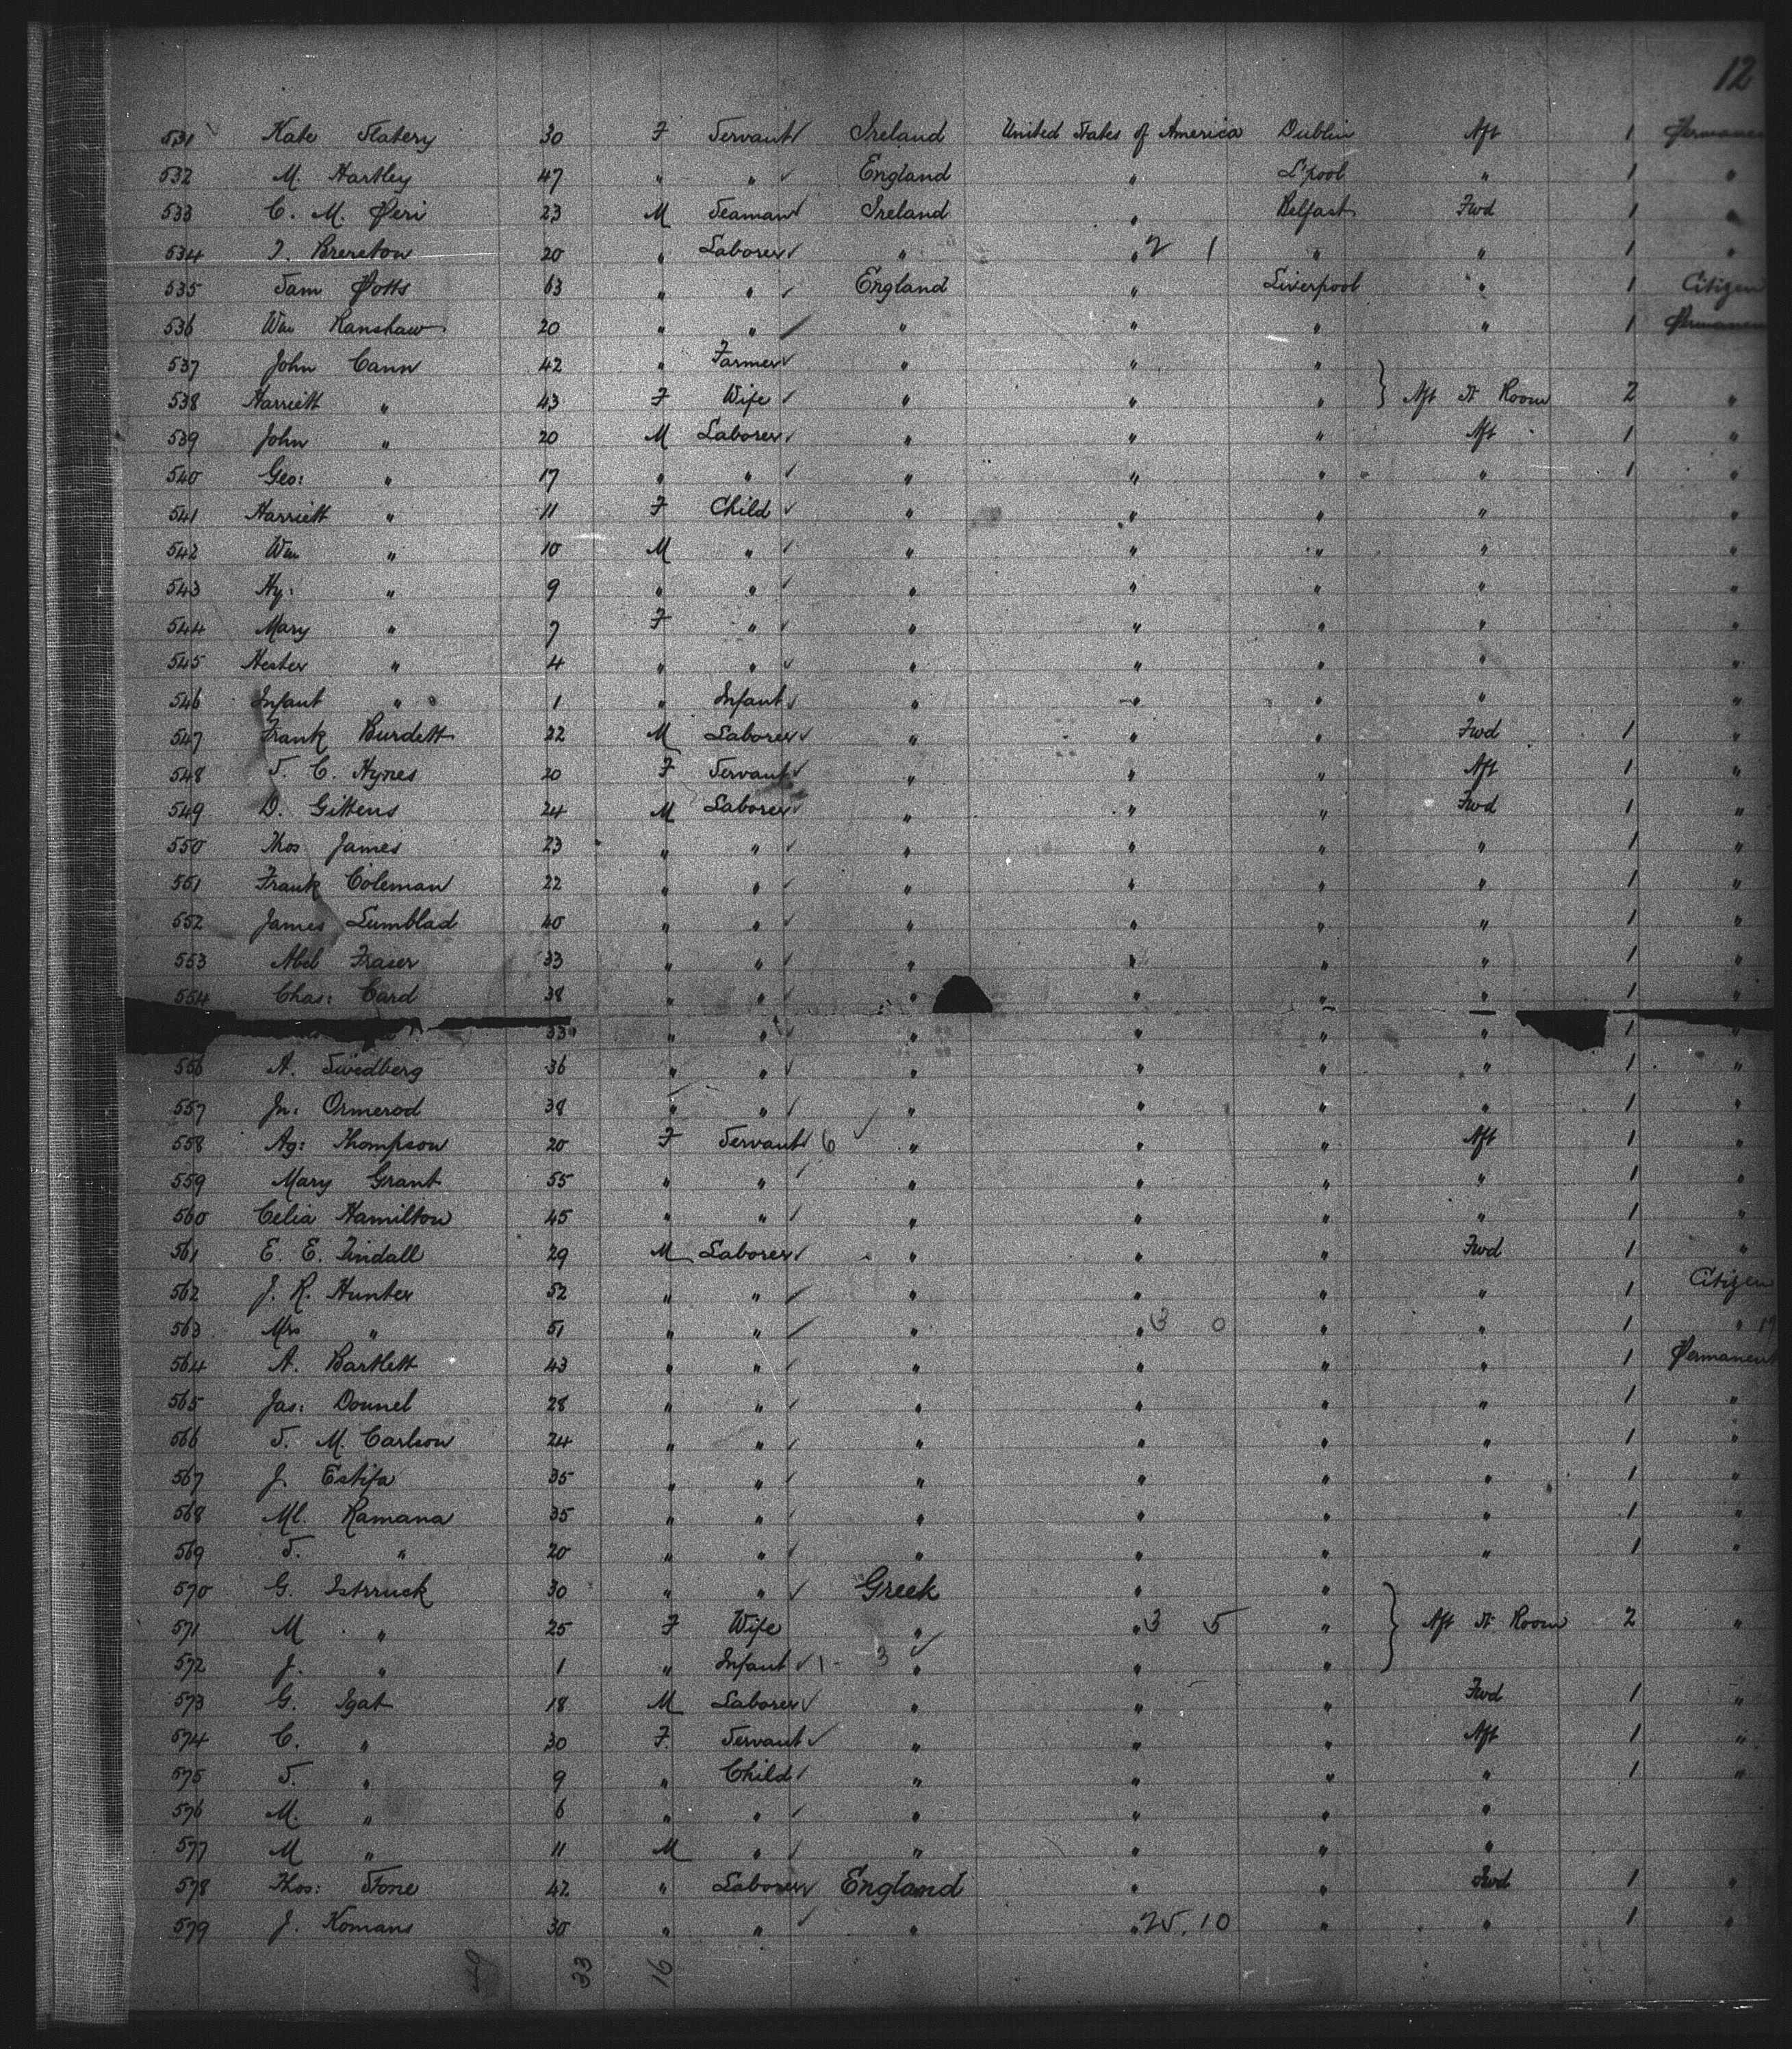 12
531 Kate Slatery 30 F Servant Ireland United States of America Dublin Aft 1 Permanen
532 M. Hartley 47 " " England " L'pool " 1 "
533 C. M. Peri 23 M Seaman Ireland " Belfast Fwd 1 "
534 J. Brereton 20 " Laborer " " 2 1 " " 1 "
535 Sam Potts 63 " " England " Liverpool " 1 Citizen
536 Wm Ranshaw 20 " " " " " " 1 Permanen
537 John Cann 42 " Farmer " " "
538 Harriett " 43 F Wife " " " } Aft St Room 2 "
539 John " 20 M Laborer " " " Aft 1 "
540 Geo: " 17 " " " " " " 1 "
541 Harriett " 11 F Child " " " " "
542 Wm " 10 M " " " " " "
543 Hy: " 9 " " " " " " "
544 Mary " 7 F " " " " " "
545 Hester " 4 " " " " " " "
546 Infant " 1 " Infant " " " " "
547 Frank Burdett 22 M Laborer " " " Fwd 1 "
548 S. C. Hynes 20 F Servant " " " Aft 1 "
549 D. Gittens 24 M Laborer " " " Fwd 1 "
550 Thos James 23 " " " " " " 1 "
551 Frank Coleman 22 " " " " " " 1 "
552 James Lumblad 40 " " " " " " 1 "
553 Abel Fraser 33 " " " " " " 1 "
554 Chas: Card 38 " " " " " " 1 "
33 " " " " " " 1 "
556 A. Swedberg 36 " " " " " " 1 "
557 Jn: Ormerod 38 " " " " " " 1 "
558 Ag: Thompson 20 F Servant 6 " " " Aft 1 "
559 Mary Grant 55 " " " " " " 1 "
560 Celia Hamilton 45 " " " " " " 1 "
561 E. E. Tindall 29 M Laborer " " " Fwd 1 "
562 J. R. Hunter 52 " " " " " " 1 Citizen
563 Mrs " 51 " " " " 3 0 " " 1 "
564 A. Bartlett 43 " " " " " " 1 Permanent
565 Jas: Donnel 28 " " " " " " 1 "
566 S. M. Carlson 24 " " " " " " 1 "
567 J. Estifa 35 " " " " " " 1 "
568 Ml. Ramana 35 " " " " " " 1 "
569 S. " 20 " " " " " " 1 "
570 G. Istrruck 30 " " Greek " "
571 M " 25 F Wife " " 3 5 " } Aft St Room 2 "
572 J. " 1 " Infant 3 " " "
573 G. Igat 18 M Laborer " " " Fwd 1 "
574 C. " 30 F. Servant " " " Aft 1 "
575 S. " 9 " Child " " " " 1 "
576 M. " 6 " " " " " "
577 M " 11 M " " " " "
578 Thos: Stone 42 " Laborer England " " Fwd 1 "
579 J. Komans 30 " " " " 25.10 " " 1 "
33 16